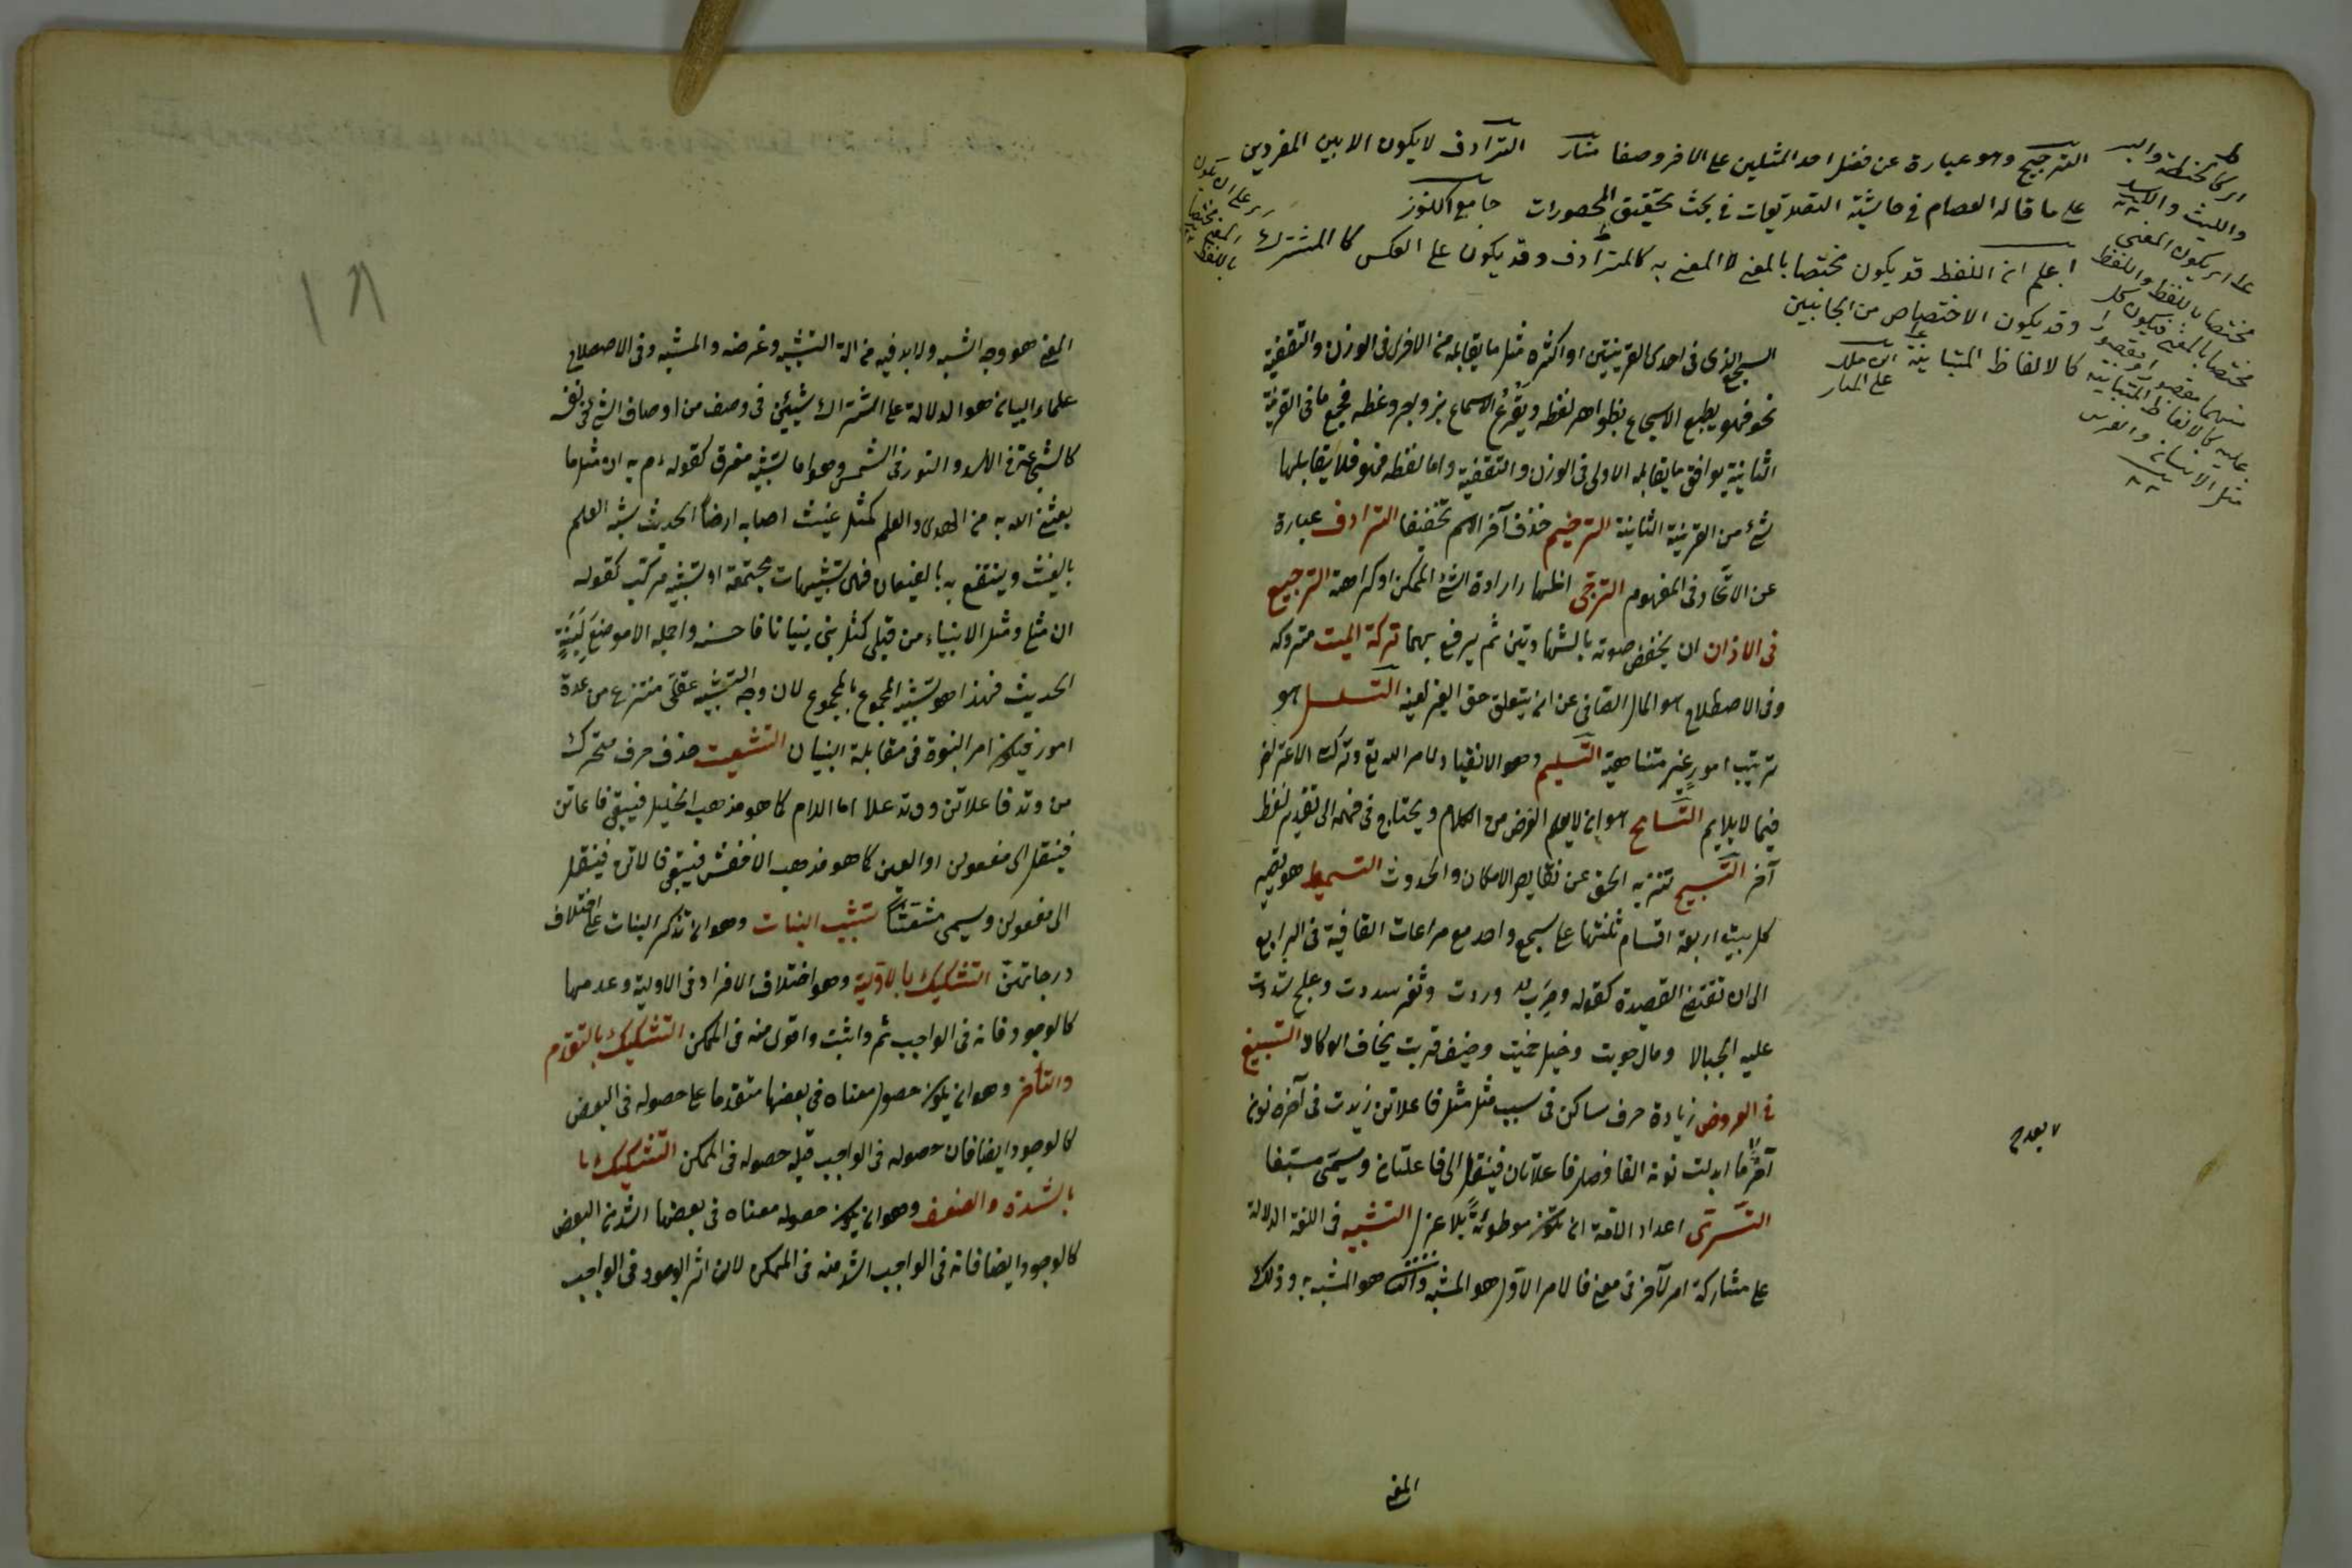 الترجيح وهو عبارة عن فضل احد المثلين على الاخر وصفا منار الترادف لا يكون الا بين المفردين
على ما قاله العصام في حاشية التصديقات في بحث تحقيق المحصورات جامع الكنوز
اعلم ان اللفظ قد يكون مختصا بالمعنى لا المعنى به كالمترادف وقد يكون على العكس كالمشترك
وقد يكون الاختصاص من الجانبين
كالالفاظ المتباينة ابن ملك
على المنار
اى كالحنطة والبر
والليث والاسد
على ان يكون المعنى
مختصا باللفظ واللفظ
مختصا بالمعنى فيكون كل
منهما مقصورا ومقصورا
عليه كالالفاظ المتباينة
مثل الانسان والفرس
اى على ان يكون
المعنى مختصا
باللفظ
السجع الذى فى احدى القرينتين او اكثره مثل ما يقابله من الاخرى فى الوزن والتقفية
نحو فهو يطبع الاسجاع بظواهر لفظه ويقرع الاسماع بزواجر وعظه فجميع ما فى القرينة
الثانية يوافق ما يقابله الاولى فى الوزن والتقفية واما لفظه فهو فلا يقابلها
شئ من القرينة الثانية الترخيم حذف آخر الاسم تخفيفا الترادف عبارة
عن الاتحاد فى المفهوم الترجى اظهار ارادة الشئ الممكن او كراهته الترجيع
فى الاذان ان يخفض صوته بالشهادتين ثم يرفع بهما تركة الميت متروكه
وفى الاصطلاح هو المال الصافى عن ان يتعلق حق الغير بعينه التسلسل هو
ترتيب امور غير متناهية التسليم وهو الانقياد لامر الله تع وترك الاعتراض
فيما لا يلايم التسامح هو ان لا يعلم الغرض من الكلام ويحتاج فى فهمه الى تقدير لفظ
آخر التسبيح تنزيه الحق عن نقايص الامكان والحدوث التسميط هو تصيير
كل بيت اربعة اقسام ثلثتها على سجع واحد مع مراعات القافية فى الرابع
الى ان تنقضى القصيدة كقوله وحرب وردت وثغر سددت وعلج شددت
عليه الحبالا ومال حويت وخيل حميت وضيف قريت يخاف الوكالا التسبيغ
فى العروض زيادة حرف ساكن فى سبب مثل مثل فاعلاتن زيدت فى آخره نون
آخر بعد ما ابدلت نونه الفا فصار فاعلاتان فينقل الى فاعلتان ويسمى مسبغا
التسرى اعداد الامة ان تكون موطوئة بلا عزل التشبيه فى اللغة الدلالة
على مشاركة امر لآخر فى معنى فالامر الاول هو المشبه والثانى هو المشبه به وذلك
بعد م
المعنى
١٨
المعنى هو وجه الشبه ولا بد فيه من آلة التشبيه وغرضه والمشبه وفى الاصطلاح
علماء البيان هو الدلالة على اشتراك شيئين فى وصف من اوصاف الشئ فى نفسه
كالشجاعة فى الاسد والنور فى الشمس وهو اما تشبيه مفرق كقوله ءم به ان مثل ما
بعثنى الله به من الهدى والعلم كمثل غيث اصاب ارضا الحديث شبه العلم
بالغيث وينتفع به بالقيعان فهى تشبيهات مجتمعة او تشبيه مركب كقوله
ان مثلى ومثل الانبياء من قبلى كمثل بنى بنيانا فاحسنه واجمله الا موضع لبنة
الحديث فهذا هو تشبيه المجموع بالمجموع لان وجه التشبيه عقلى منتزع من عدة
امور فيكون امر النبوة فى مقابلة البنيان التشعيث حذف حرف متحرك
من وتد فاعلاتن ووتد علا اما اللام كما هو مذهب الخليل فيبقى فاعاتن
فينقل الى مفعولن او العين كما هو مذهب الاخفش فيبقى فالاتن فينقل
الى مفعولن ويسمى مشعثا تشبيب البنات وهو ان تذكر البنات على اختلاف
درجاتهن التشكيك بالاولية وهو اختلاف الافراد فى الاولية وعدمها
كالوجود فانه فى الواجب تم واثبت واقوى منه فى الممكن التشكيك بالتقدم
والتأخر وهو ان يكون حصول معناه فى بعضها متقدما على حصوله فى البعض
كالوجود ايضا فان حصوله فى الواجب قبل حصوله فى الممكن التشكيك با
بالشدة والضعف وهو ان يكون حصول معناه فى بعضها اشد من البعض
كالوجود ايضا فانه فى الواجب اشد منه فى الممكن لان اثر الوجود فى الواجب